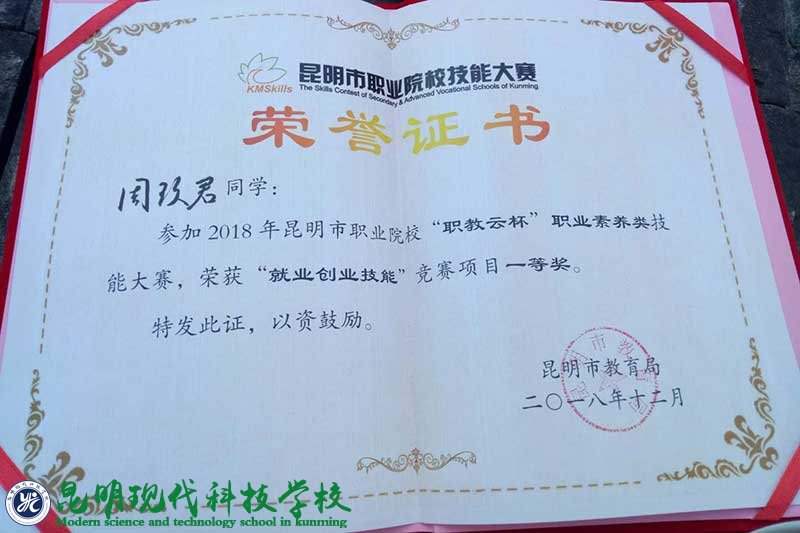 KMSkills
昆明市职业院校技能大赛
The Skills Contest of Secondary & Advanced Vocational Schools of Kunming
荣誉证书
周玖君同学：
参加 2018 年昆明市职业院校“职教云杯”职业素养类技
能大赛，荣获“就业创业技能”竞赛项目一等奖。
特发此证，以资鼓励。
昆明市教育局
二〇一八年十二月
昆明现代科技学校
Modern science and technology school in kunming